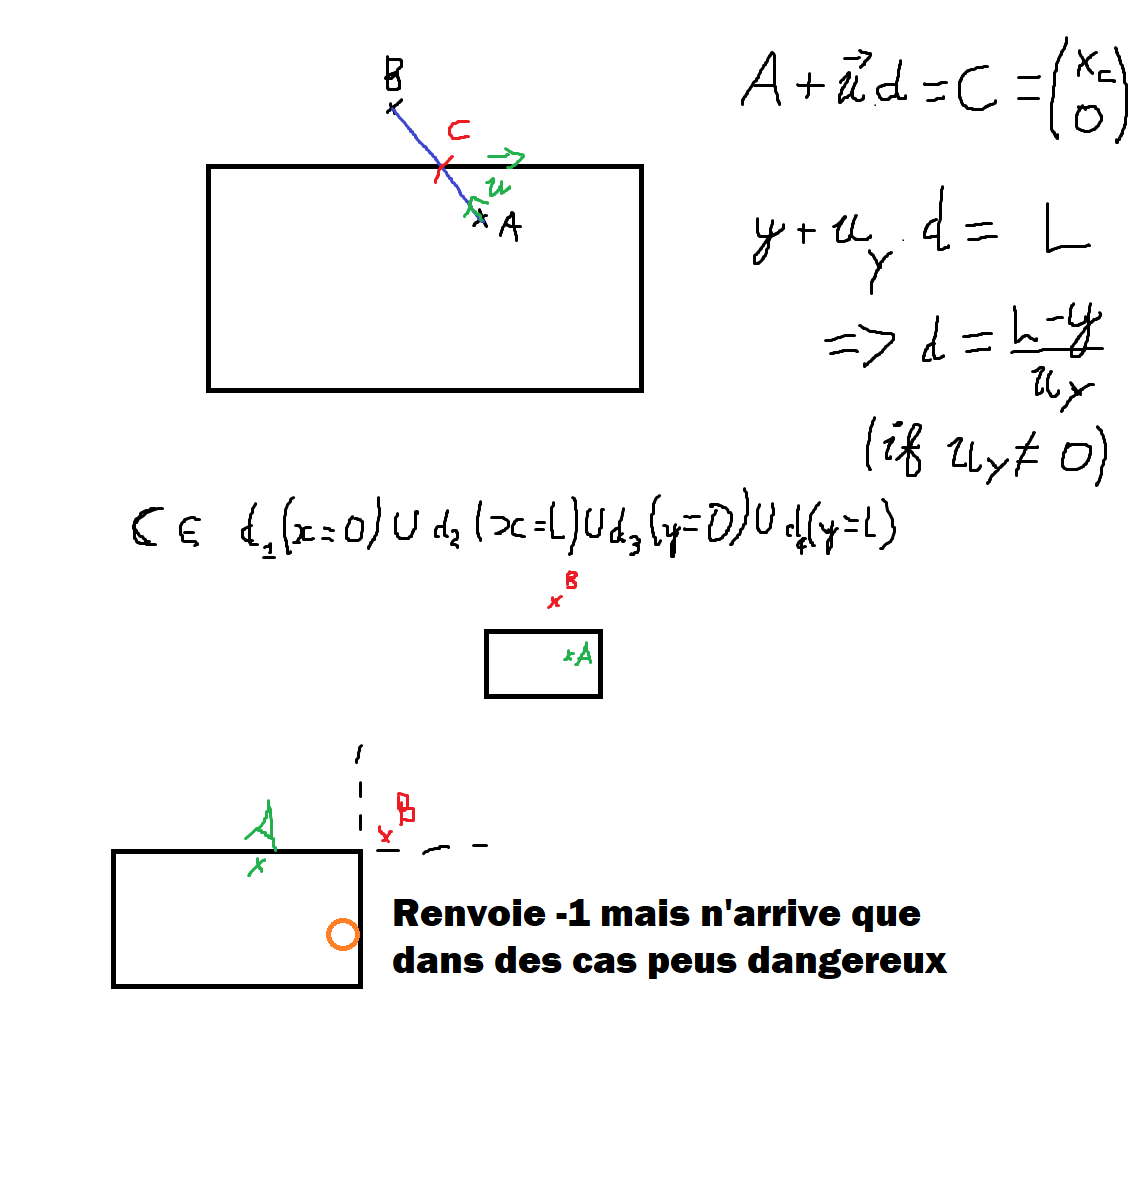 B
C
u⃗
A
A + u⃗.d = C = (x_c
0)
y + u_y . d = L
=> d = L-y / u_y
(if u_y ≠ 0)
C ∈ d_1(x=0) ∪ d_2(x=L) ∪ d_3(y=0) ∪ d_4(y=L)
B
A
A
B
Renvoie -1 mais n'arrive que
dans des cas peus dangereux